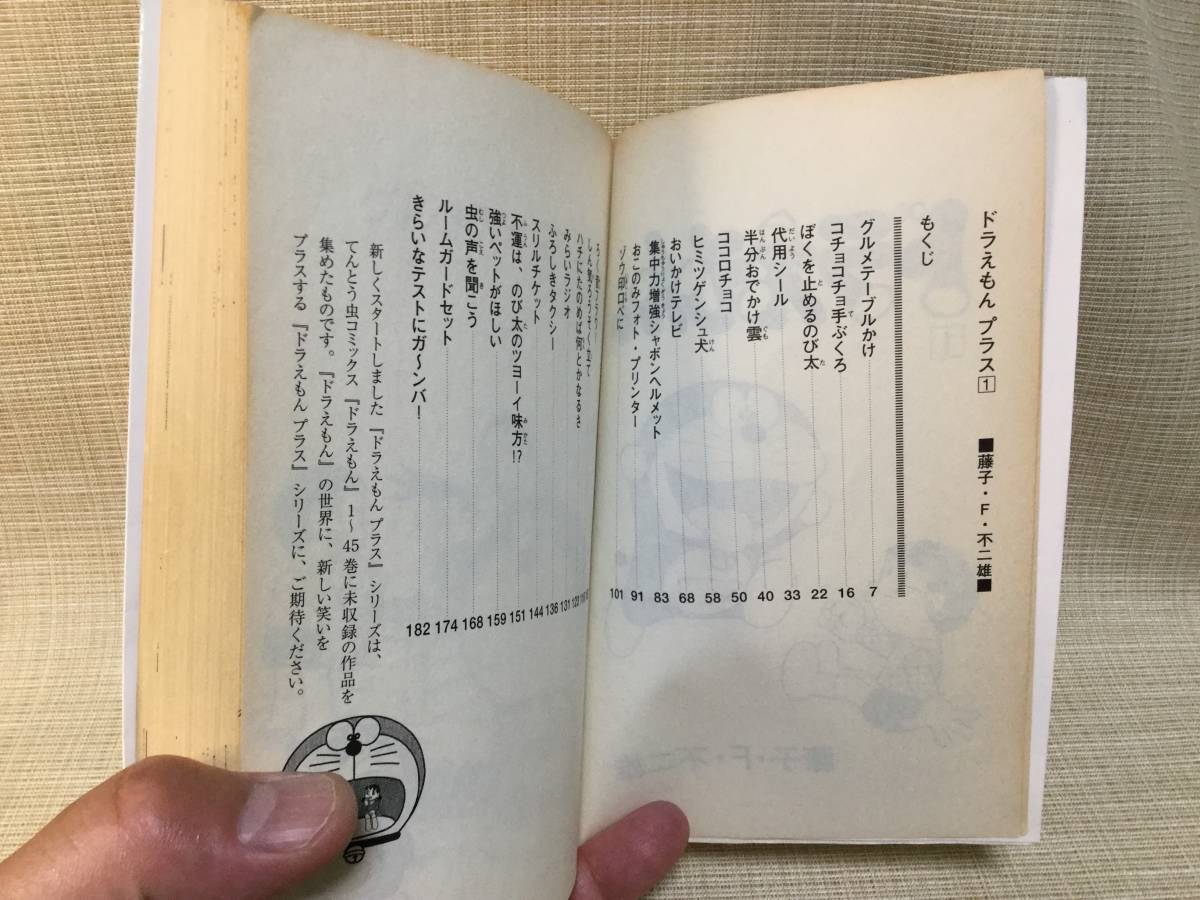 ドラえもん プラス 1
■藤子・F・不二雄■
もくじ
グルメテーブルかけ 7
コチョコチョ手ぶくろ 16
ぼくを止めるのび太 22
代用シール 33
半分おでかけ雲 40
ココロチョコ 50
ヒミツゲンシュ犬 58
おいかけテレビ 68
集中力増強シャボンヘルメット 83
おこのみフォト・プリンター 91
ゾウ印口べに 101
ハチにたのめば何とかなるさ
みらいラジオ 131
ふろしきタクシー 136
スリルチケット 144
不運は、のび太のツヨーイ味方!? 151
強いペットがほしい 159
虫の声を聞こう 168
ルームガードセット 174
きらいなテストにガ〜ンバ！ 182
新しくスタートしました『ドラえもん プラス』シリーズは、
てんとう虫コミックス『ドラえもん』1〜45巻に未収録の作品を
集めたものです。『ドラえもん』の世界に、新しい笑いを
プラスする『ドラえもん プラス』シリーズに、ご期待ください。